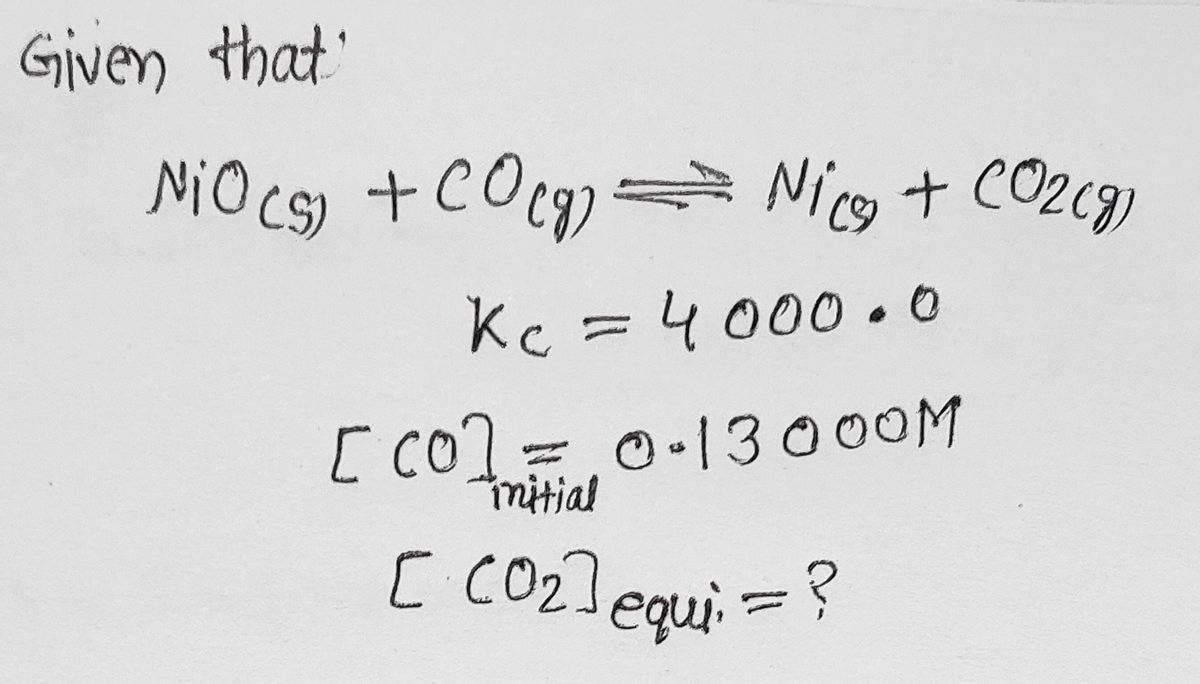 Given that'
NiO(s) + CO(g) ⇌ Ni(s) + CO2(g)
Kc = 4000.0
[CO]initial = 0.13000M
[CO2]equi. = ?